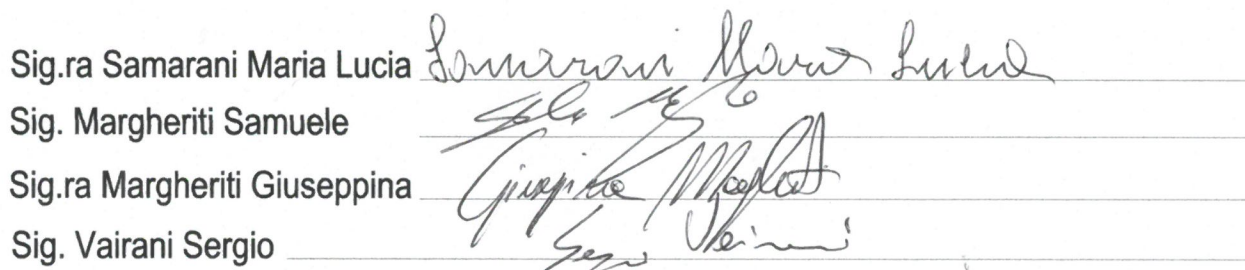 Sig.ra Samarani Maria Lucia Samarani Maria Lucia
Sig. Margheriti Samuele
Sig.ra Margheriti Giuseppina Giuseppina
Sig. Vairani Sergio Sergio Vairani